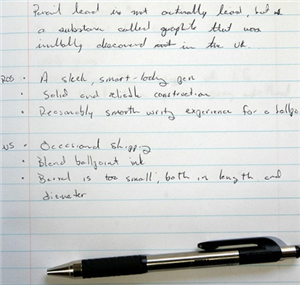 Pencil lead is not actually lead, but is
a substance called graphite that was
initially discovered in the UK.
PROS · A sleek, smart-looking pen
· Solid and reliable construction
· Reasonably smooth writing experience for a ballpoint
· Occasional skipping
· Blend ballpoint ink
· Barrel is too small, both in length and
diameter